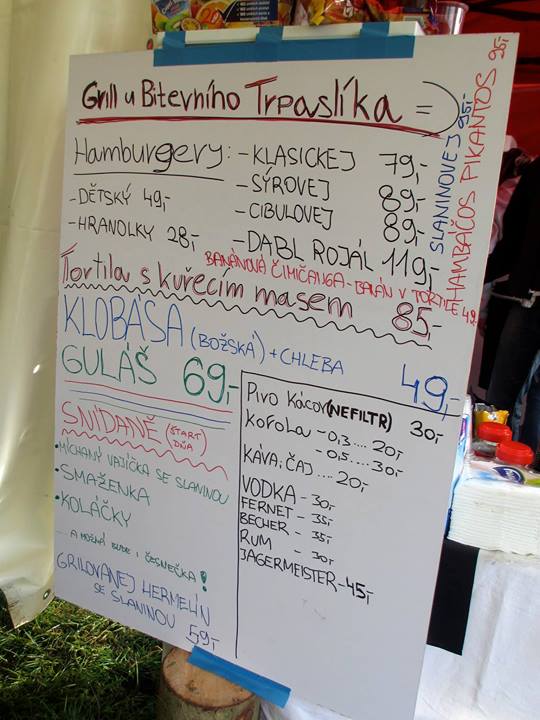 Grill u Bitevního Trpaslíka =)
Hamburgery:
- KLASICKEJ 79,-
- SÝROVEJ 89,-
- CIBULOVEJ 89,-
- DABL ROJÁL 119,-
- DĚTSKÝ 49,-
- HRANOLKY 28,-
SLANINOVEJ 95,-
HAMBÁČOS PIKANTOS 95,-
BANÁNOVÁ ČIMIČANGA - BANÁN V TORTILE 49,-
Tortila s kuřecím masem 85,-
KLOBÁSA (BOŽSKÁ) + CHLEBA 49,-
GULÁŠ 69,-
SNÍDANĚ (START DŇA)
• MÍCHANÝ VAJÍČKA SE SLANINOU
• SMAŽENKA
• KOLÁČKY
... A MOŽNÁ BUDE I ČESNEČKA!
GRILOVANEJ HERMELÍN
SE SLANINOU 59,-
PIVO KÁCOV (NEFILTR) 30,-
KOFOLA - 0,3 .... 20,-
- 0,5 .... 30,-
KÁVA, ČAJ .... 20,-
VODKA - 30,-
FERNET - 35,-
BECHER - 35,-
RUM - 30,-
JÄGERMEISTER - 45,-